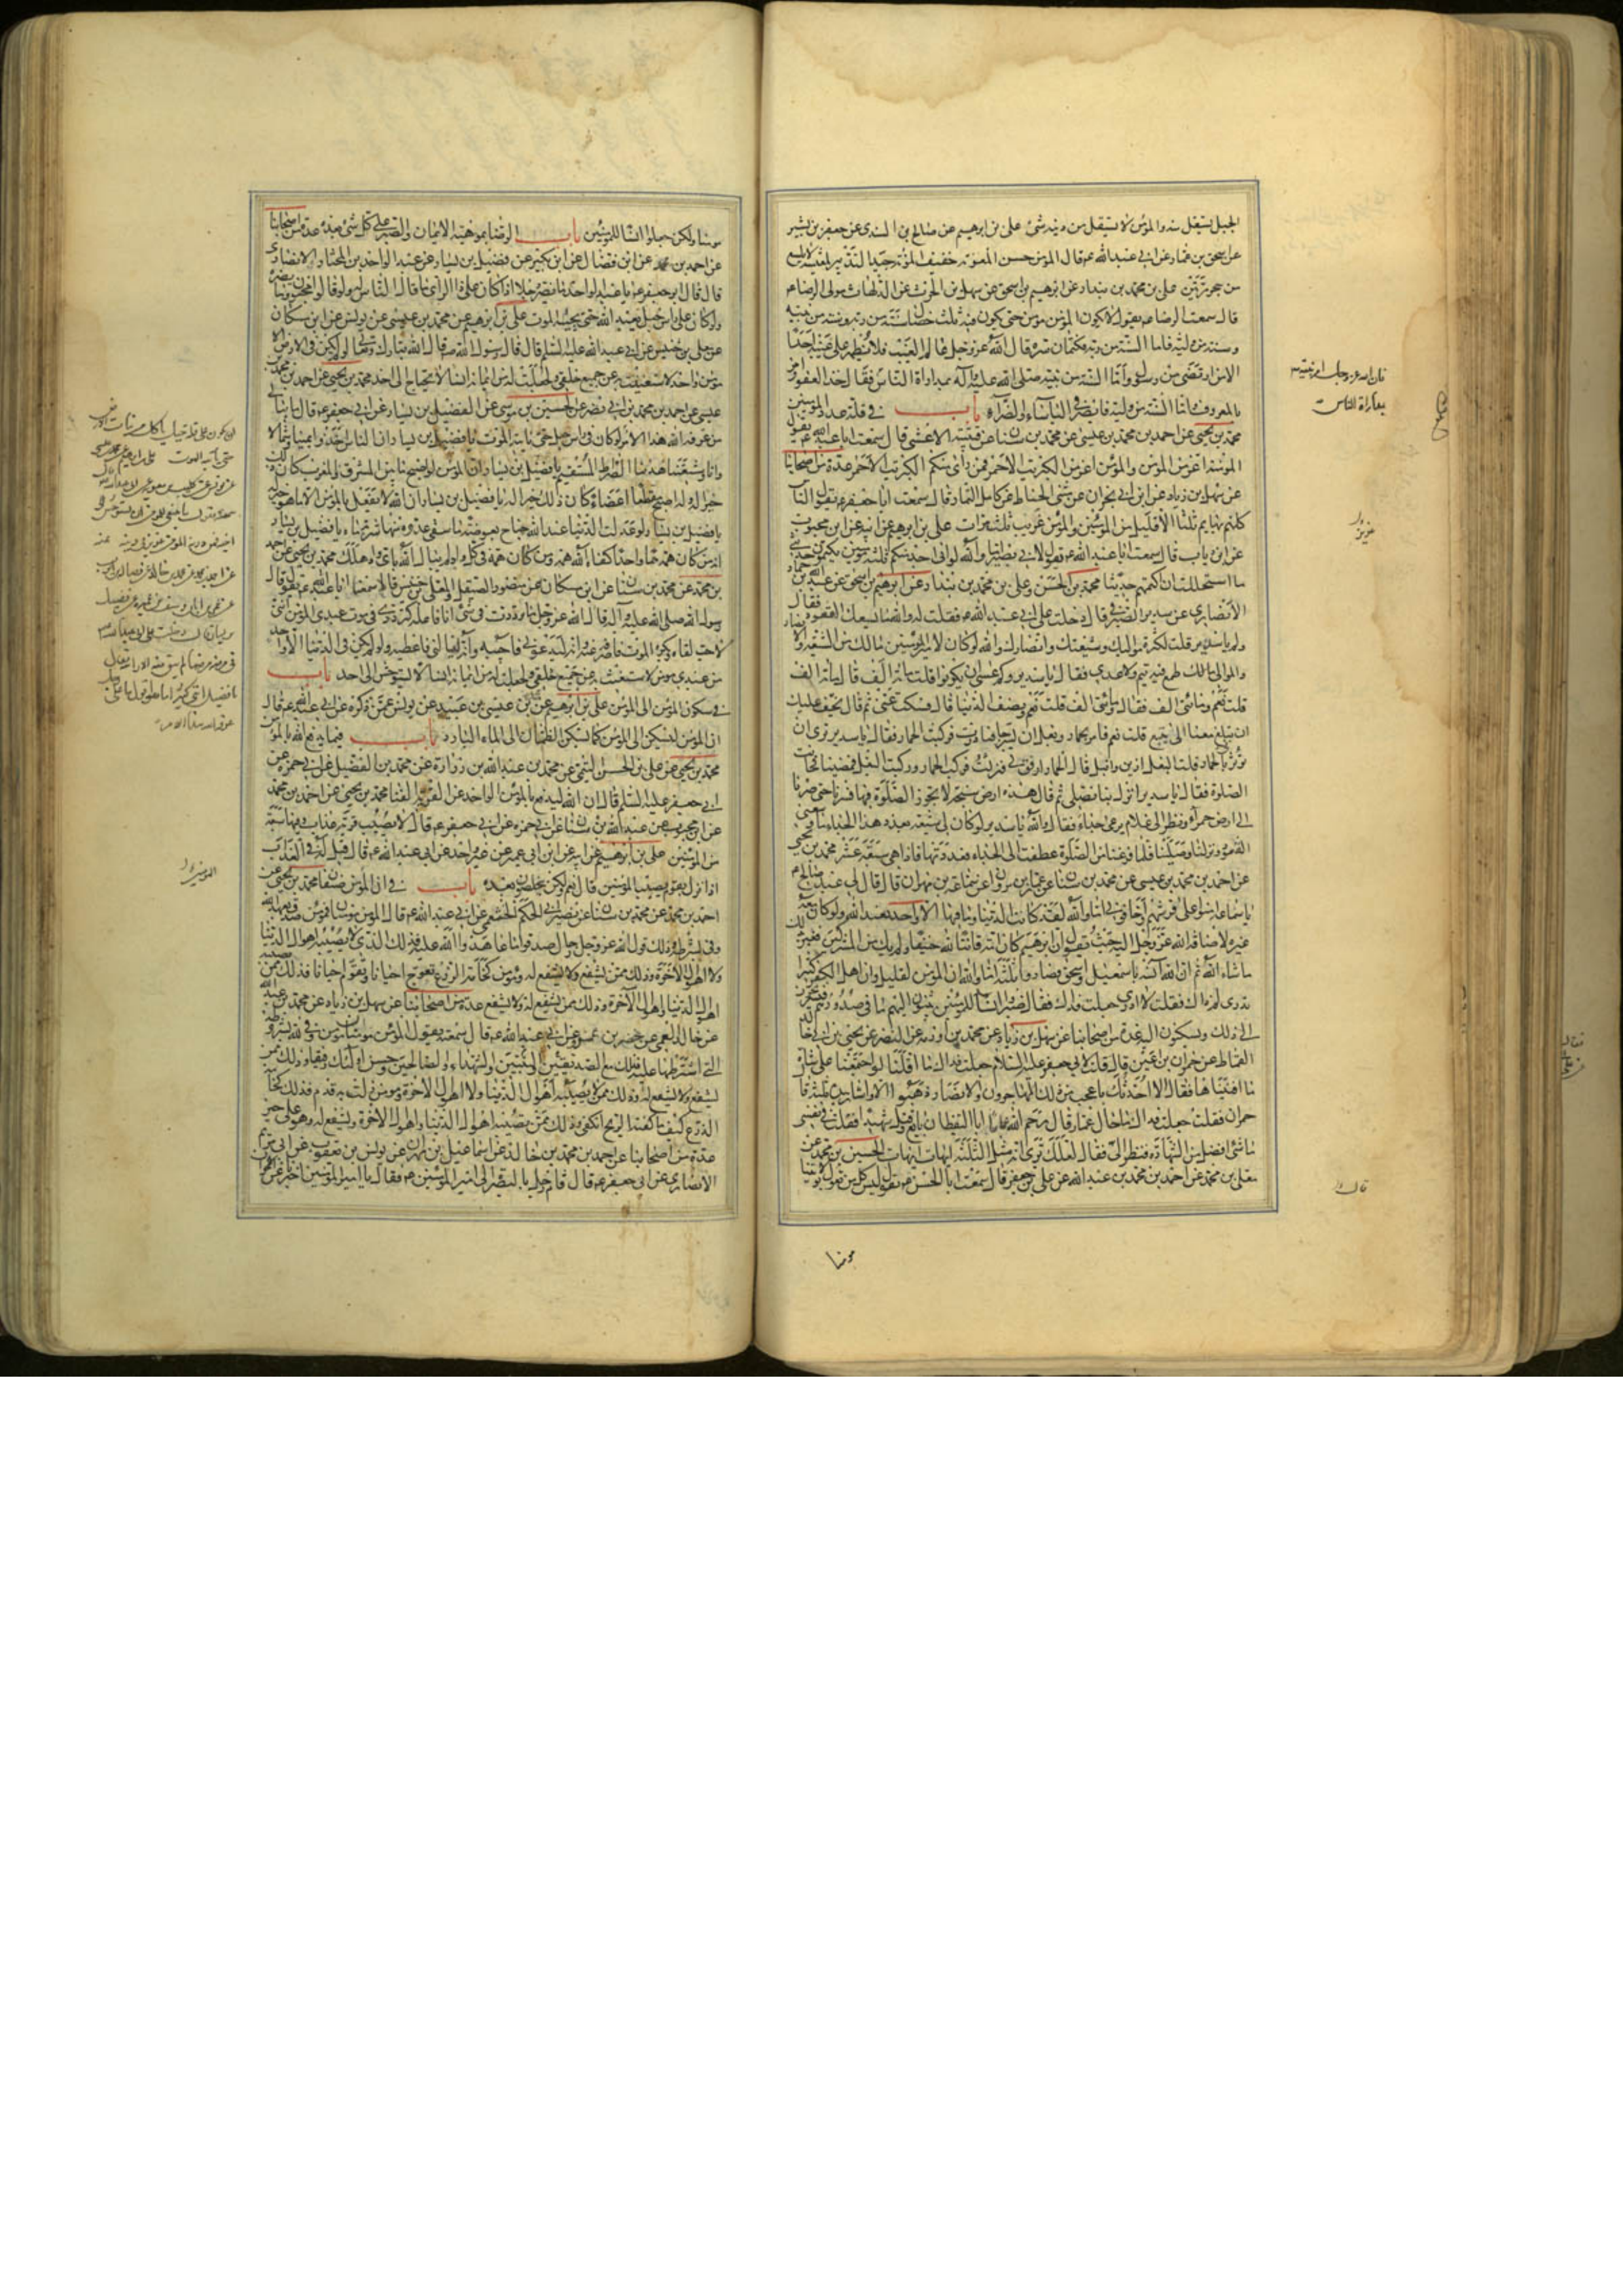 الجبل يستقل منه والمؤمن لا يستقل من دينه شئ علي بن ابرهيم عن صالح بن السندي عن جعفر بن بشير
عن اسحق بن عمار عن ابي عبد الله ع قال المؤمن حسن المعونة خفيف المؤنة جيد التدبير لمعيشته لا يلسع
من جحر مرتين علي بن محمد بن بندار عن ابرهيم بن اسحق عن سهل بن الحرث عن الدلهاث مولى الرضا ع
قال سمعت الرضا ع يقول لا يكون المؤمن مؤمن حتى يكون فيه ثلث خصال سنة من ربه وسنة من نبيه
وسنة من وليه فاما السنة من ربه فكتمان سره قال الله عز وجل عالم الغيب فلا يظهر على غيبه احدا
الا من ارتضى من رسول واما السنة من نبيه صلى الله عليه وآله بمداراة الناس فقال خذ العفو وأمر
بالمعروف واما السنة من وليه فالصبر في البأساء والضراء باب في قلة عدد المؤمنين
محمد بن يحيى عن احمد بن محمد بن عيسى عن محمد بن سنان عن قتيبة الاعشى قال سمعت ابا عبد الله ع يقول
المؤمنة اعز من المؤمن والمؤمن اعز من الكبريت الاحمر فمن رأى منكم الكبريت الاحمر عدة من اصحابنا
عن سهل بن زياد عن ابن ابي نجران عن مثنى الحناط عن كامل التمار قال سمعت ابا جعفر ع يقول الناس
كلهم بهايم ثلثا الا قليل من المؤمنين والمؤمن غريب ثلث مرات علي بن ابرهيم عن ابيه عن ابن محبوب
عن ابن رياب قال سمعت ابا عبد الله ع يقول لابي بصير اما والله لو اني اجد منكم ثلثة مؤمنين يكتمون حديثي
ما استحللت ان اكتمهم حديثا محمد بن الحسن وعلي بن محمد بن بندار عن ابرهيم بن اسحق عن عبد الله بن حماد
الانصاري عن سدير الصيرفي قال دخلت على ابي عبد الله ع فقلت له والله ما يسعك القعود فقال
ولم يا سدير قلت لكثرة مواليك وشيعتك وانصارك والله لو كان لامير المؤمنين ما لك من الشيعة والانصار
والموالي ما طمع فيه تيم ولا عدي فقال يا سدير وكم عسى ان يكونوا قلت مائة الف قال مائة الف
قلت نعم ومائتي الف فقال ومائتي الف قلت نعم ونصف الدنيا قال فسكت عني ثم قال يخف عليك
ان تبلغ معنا الى ينبع قلت نعم فامر بحمار وبغل ان يسرجا فبادرت فركبت الحمار فقال يا سدير ترى ان
تؤثرني بالحمار قلت البغل ازين وانبل قال الحمار ارفق بي فنزلت فركب الحمار وركبت البغل فمضينا فحانت
الصلوة فقال يا سدير انزل بنا نصلي ثم قال هذه ارض سبخة لا يجوز الصلوة فيها فسرنا حتى صرنا
الى ارض حمراء ونظر الى غلام يرعى جداء فقال والله يا سدير لو كان لي شيعة بعدد هذه الجداء ما وسعني
القعود ونزلنا وصلينا فلما فرغنا من الصلوة عطفت الى الجداء فعددتها فاذا هي سبعة عشر محمد بن يحيى
عن احمد بن محمد بن عيسى عن محمد بن سنان عن عمار بن مروان عن سماعة بن مهران قال قال لي عبد صالح ع
يا سماعة امنوا على فرشهم واخافوني اما والله لقد كانت الدنيا وما فيها الا واحد يعبد الله ولو كان معه
غيره لاضافه الله عز وجل اليه حيث يقول ان ابرهيم كان امة قانتا لله حنيفا ولم يك من المشركين فغبر بذلك
ما شاء الله ثم ان الله آنسه باسمعيل واسحق فصاروا ثلثة اما والله ان المؤمن لقليل وان اهل الكفر كثير
تدري لم ذاك فقلت لا ادري جعلت فداك فقال صيروا انسا للمؤمنين يبثون اليهم ما في صدورهم فيستريحون
الى ذلك ويسكنون اليه عدة من اصحابنا عن سهل بن زياد عن محمد بن اورمة عن النضر عن يحيى بن ابي خالد
القماط عن حمران بن اعين قال قلت لابي جعفر عليه السلام جعلت فداك ما اقلنا لو اجتمعنا على شاة
ما افنيناها فقال الا احدثك باعجب من ذلك المهاجرون والانصار ذهبوا الا واشار بيده ثلثة قال
حمران فقلت جعلت فداك ما حال عمار قال رحم الله عمارا ابا اليقظان بايع وقتل شهيدا فقلت في نفسي
ما شئ افضل من الشهادة فنظر الي فقال لعلك ترى انه مثل الثلثة ايهات ايهات الحسين بن محمد عن
معلى بن محمد عن احمد بن محمد بن عبد الله عن علي بن جعفر قال سمعت ابا الحسن ع يقول ليس كل من يقول بولايتنا
مؤمنا
فان الله عز وجل امر نبيه ص
بمداراة الناس
عزيز
قال
مؤمنا ولكن جعلوا انسا للمؤمنين باب الرضا بموهبة الايمان والصبر على كل شئ بعده عدة من اصحابنا
عن احمد بن محمد عن ابن فضال عن ابن بكير عن فضيل بن يسار عن عبد الواحد بن المختار الانصاري
قال قال ابو جعفر ع يا عبد الواحد ما يضر رجلا اذا كان على ذا الرأي ما قال الناس له ولو قالوا مجنون وما يضره
ولو كان على رأس جبل يعبد الله حتى يجيئه الموت علي بن ابرهيم عن محمد بن عيسى عن يونس عن ابن مسكان
عن معلى بن خنيس عن ابي عبد الله عليه السلم قال قال رسول الله ص قال الله تبارك وتعالى لو لم يكن في الارض الا
مؤمن واحد لاستغنيت به عن جميع خلقي ولجعلت له من ايمانه انسا لا يحتاج الى احد محمد بن يحيى عن احمد بن محمد بن
عيسى عن احمد بن محمد بن ابي نصر عن الحسين بن موسى عن الفضيل بن يسار عن ابي جعفر ع قال ما يبالي
من عرفه الله هذا الامر لو كان في رأس جبل حتى يأتيه الموت يا فضيل بن يسار ان الناس اخذوا يمينا وشمالا
وانا وشيعتنا هدينا الصراط المستقيم يا فضيل بن يسار ان المؤمن لو اصبح ما بين المشرق والمغرب كان ذلك
خيرا له ولو اصبح مقطعا اعضاؤه كان ذلك خيرا له يا فضيل بن يسار ان الله لا يفعل بالمؤمن الا ما هو خير له
يا فضيل بن يسار لو عدلت الدنيا عند الله جناح بعوضة ما سقى عدوه منها شربة ماء يا فضيل بن يسار
انه من كان همه هما واحدا كفاه الله همه ومن كان همه في كل واد لم يبال الله باي واد هلك محمد بن يحيى عن احمد
بن محمد عن محمد بن سنان عن ابن مسكان عن منصور الصيقل والمعلى بن خنيس قالا سمعنا ابا عبد الله ع يقول قال
رسول الله صلى الله عليه وآله قال الله عز وجل ما ترددت في شئ انا فاعله كترددي في موت عبدي المؤمن انني
لاحب لقاءه ويكره الموت فاصرفه عنه انه ليدعوني فاجيبه وانه ليسألني فاعطيه ولو لم يكن في الدنيا الا واحد
من عبيدي مؤمن لاستغنيت به عن جميع خلقي ولجعلت له من ايمانه انسا لا يستوحش الى احد باب
في سكون المؤمن الى المؤمن علي بن ابرهيم عن محمد بن عيسى بن عبيد عن يونس عمن ذكره عن ابي عبد الله ع قال
ان المؤمن ليسكن الى المؤمن كما يسكن الظمآن الى الماء البارد باب فيما يدفع الله بالمؤمن
محمد بن يحيى عن علي بن الحسن التيمي عن محمد بن عبد الله بن زرارة عن محمد بن الفضيل عن ابي حمزة عن
ابي جعفر عليه السلم قال ان الله ليدفع بالمؤمن الواحد عن القرية الفنا محمد بن يحيى عن احمد بن محمد
عن ابن محبوب عن عبد الله بن سنان عن ابي حمزة عن ابي جعفر ع قال لا يصيب قرية عذاب وفيها سبعة
من المؤمنين علي بن ابرهيم عن ابيه عن ابن ابي عمير عن غير واحد عن ابي عبد الله ع قال قيل له في العذاب
اذا نزل بقوم يصيب المؤمنين قال نعم ولكن يخلصون بعده باب في ان المؤمن صنفان محمد بن يحيى عن
احمد بن محمد عن محمد بن سنان عن نصير ابي الحكم الخثعمي عن ابي عبد الله ع قال المؤمن مؤمنان فمؤمن صدق بعهد الله
ووفى بشرطه وذلك قول الله عز وجل رجال صدقوا ما عاهدوا الله عليه فذلك الذي لا يصيبه اهوال الدنيا
ولا اهوال الآخرة وذلك ممن يشفع ولا يشفع له ومؤمن كخامة الزرع يعوج احيانا ويقوم احيانا فذلك ممن يصيبه
اهوال الدنيا واهوال الآخرة وذلك ممن يشفع له ولا يشفع عدة من اصحابنا عن سهل بن زياد عن محمد بن عبد الله
عن خالد العمي عن خضر بن عمرو عن ابي عبد الله ع قال سمعته يقول المؤمن مؤمنان مؤمن وفى لله بشروطه
التي اشترطها عليه فذلك مع الصديقين والنبيين والشهداء والصالحين وحسن اولئك رفيقا وذلك ممن
يشفع ولا يشفع له وذلك ممن لا يصيبه اهوال الدنيا ولا اهوال الآخرة ومؤمن زلت به قدم فذلك كخامة
الزرع كيف ما كفته الريح انكفى وذلك ممن تصيبه اهوال الدنيا واهوال الآخرة ويشفع له وهو على خير
عدة من اصحابنا عن احمد بن محمد بن خالد عن اسماعيل بن مهران عن يونس بن يعقوب عن ابي مريم
الانصاري عن ابي جعفر ع قال قام رجل بالبصرة الى امير المؤمنين ع فقال يا امير المؤمنين اخبرنا عن الاخوان
حتى يأتيه الموت